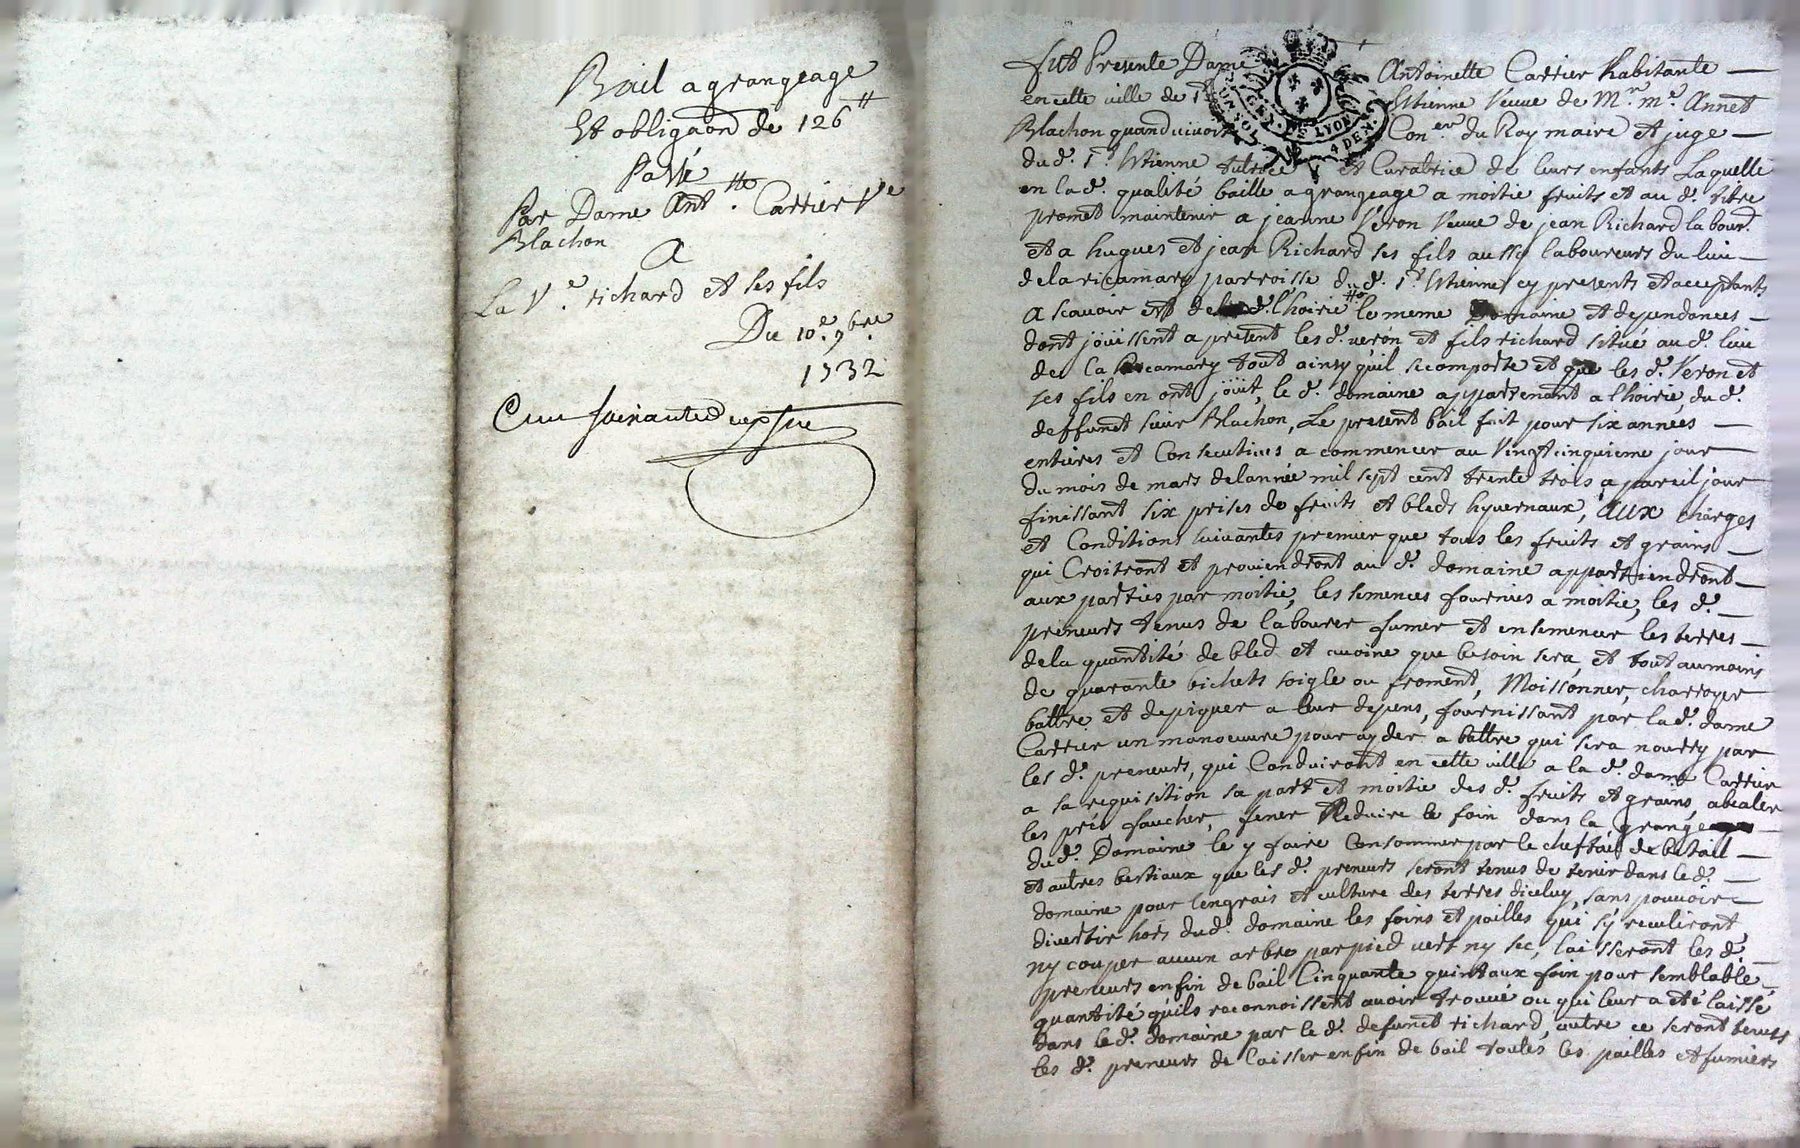 Bail a grangeage
Et obligaon de 126 tt
Passé
Par Dame Ant.tte Carrier Ve
Blachon
A
La Ve. richard et ses fils
Du 10e. 9bre.
1732
Cent soixante
GEN. DE LYON
UN SOL 4 DEN.
fut Presente Dame Antoinette Carrier habitante
en cette ville de St Estienne Veuve de Mr. me. Annet
Blachon quand vivoit Con.er du Roy maire et juge
du d. St. Estienne tutrice et Curatrice de leurs enfants Laquelle
en la d. qualité baille a grangeage a moitie fruits et au d. titre
promet maintenir a jeanne Veron Veuve de jean Richard labour.
et a hugues et jean Richard ses fils aussy laboureurs du lieu
de la ricamary parroisse du d. St. Estienne cy presents et acceptants
A scavoir est de lad. l'hoirie le meme Domaine et dependances
dont jouissent a present les d. veron et fils richard situé au d. lieu
de la Ricamary tout ainsy quil se comporte et que les d. Veron et
ses fils en ont joüit, le d. domaine appartenant a lhoirie du d.
deffunct sieur Blachon, Le present bail fait pour six années
entieres et Consecutives a commencer au Vingt cinquieme jour
du mois de mars de lannée mil sept cent trente trois a pareil jour
finissant six prises de fruits et bleds hyvernaux, aux charges
et Conditions suivantes premier que tous les fruits et grains
qui Croitront et proviendront au d. domaine appartiendront
aux parties par moitie, les semences fournies a moitie, les d.
preneurs tenus de labourer fumer et ensemencer les terres
de la quantité de bled et avoine que besoin sera, et tout au moins
de quarante bichets soigle ou froment, Moissonner, charroyer
battre et depiquer a leur depens, fournissant par la d. dame
Carrier un manoeuvre pour ayder a battre qui sera nourry par
les d. preneurs, qui Conduiront en cette ville a la d. dame Carrier
a sa requisition sa part et moitie des d. fruits et grains, abealer
les prés, faucher, fener Reduire le foin dans la grange
du d. Domaine le y faire Consommer par le cheftail de betail
et autres bestiaux que les d. preneurs seront tenus de tenir dans le d.
domaine pour lengrais et culture des terres diceluy, sans pouvoir
divertir hors du d. domaine les foins et pailles qui sy reculiront
ny couper aucun arbre par pied vert ny sec, laisseront les d.
preneurs en fin de bail Cinquante quintaux foin pour semblable
quantité quils reconnoissent avoir trouvé ou qui leur a été laissé
dans le d. domaine par le d. defunct richard, outre ce seront tenus
les d. preneurs de laisser en fin de bail toutes les pailles et fumiers